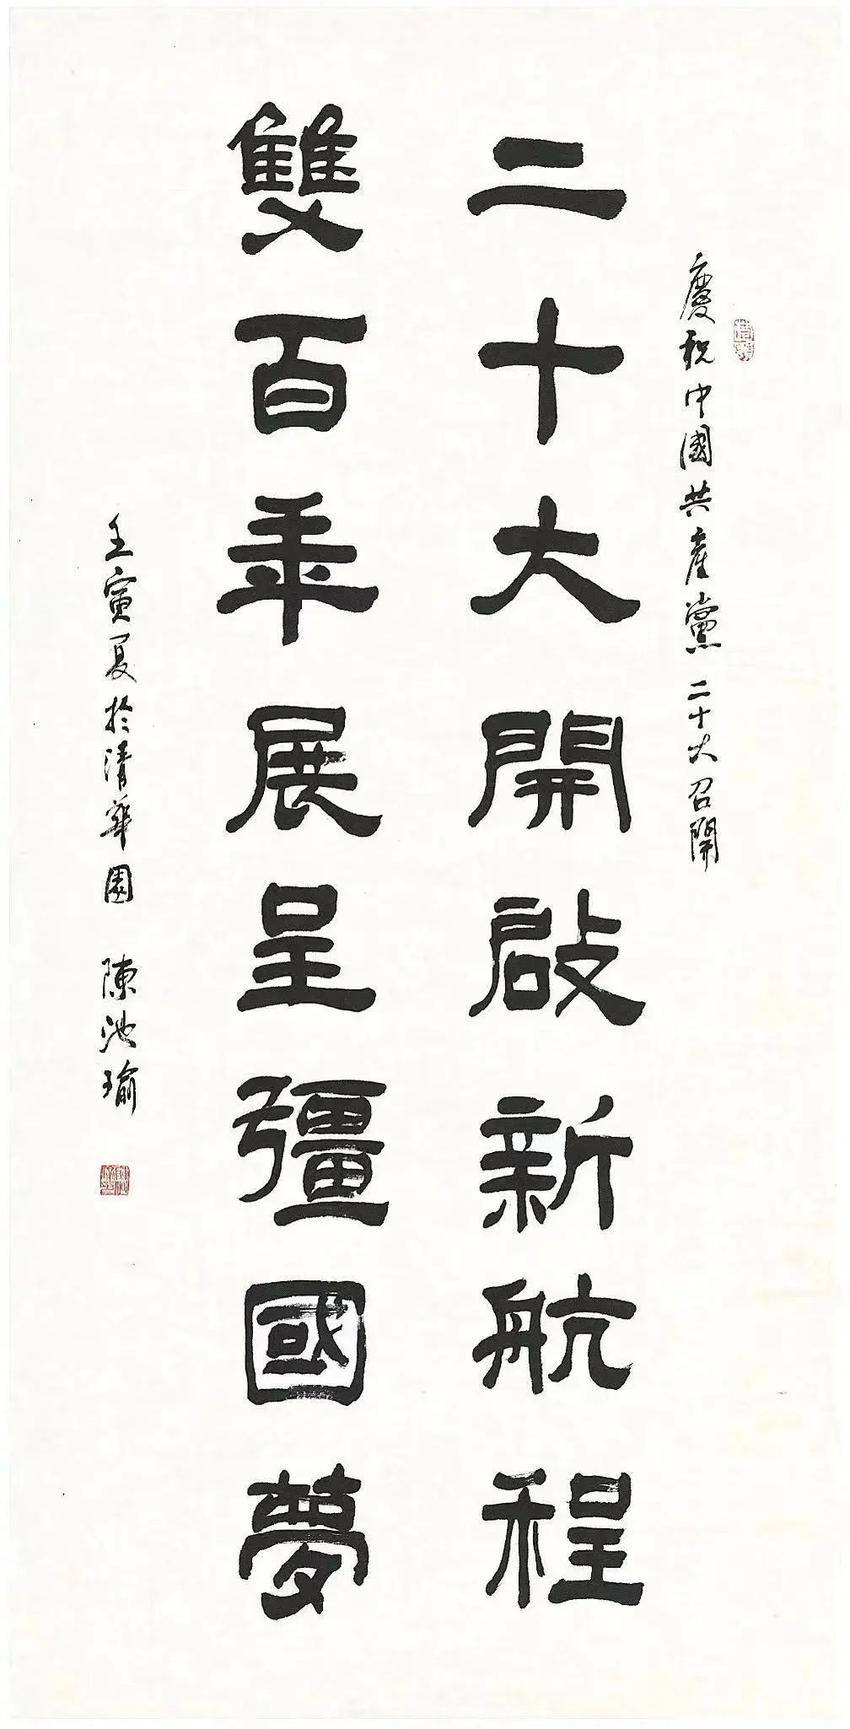 慶祝中國共產黨二十大召開
二十大開啟新航程
雙百年展呈彊國夢
壬寅夏於清華園 陳池瑜